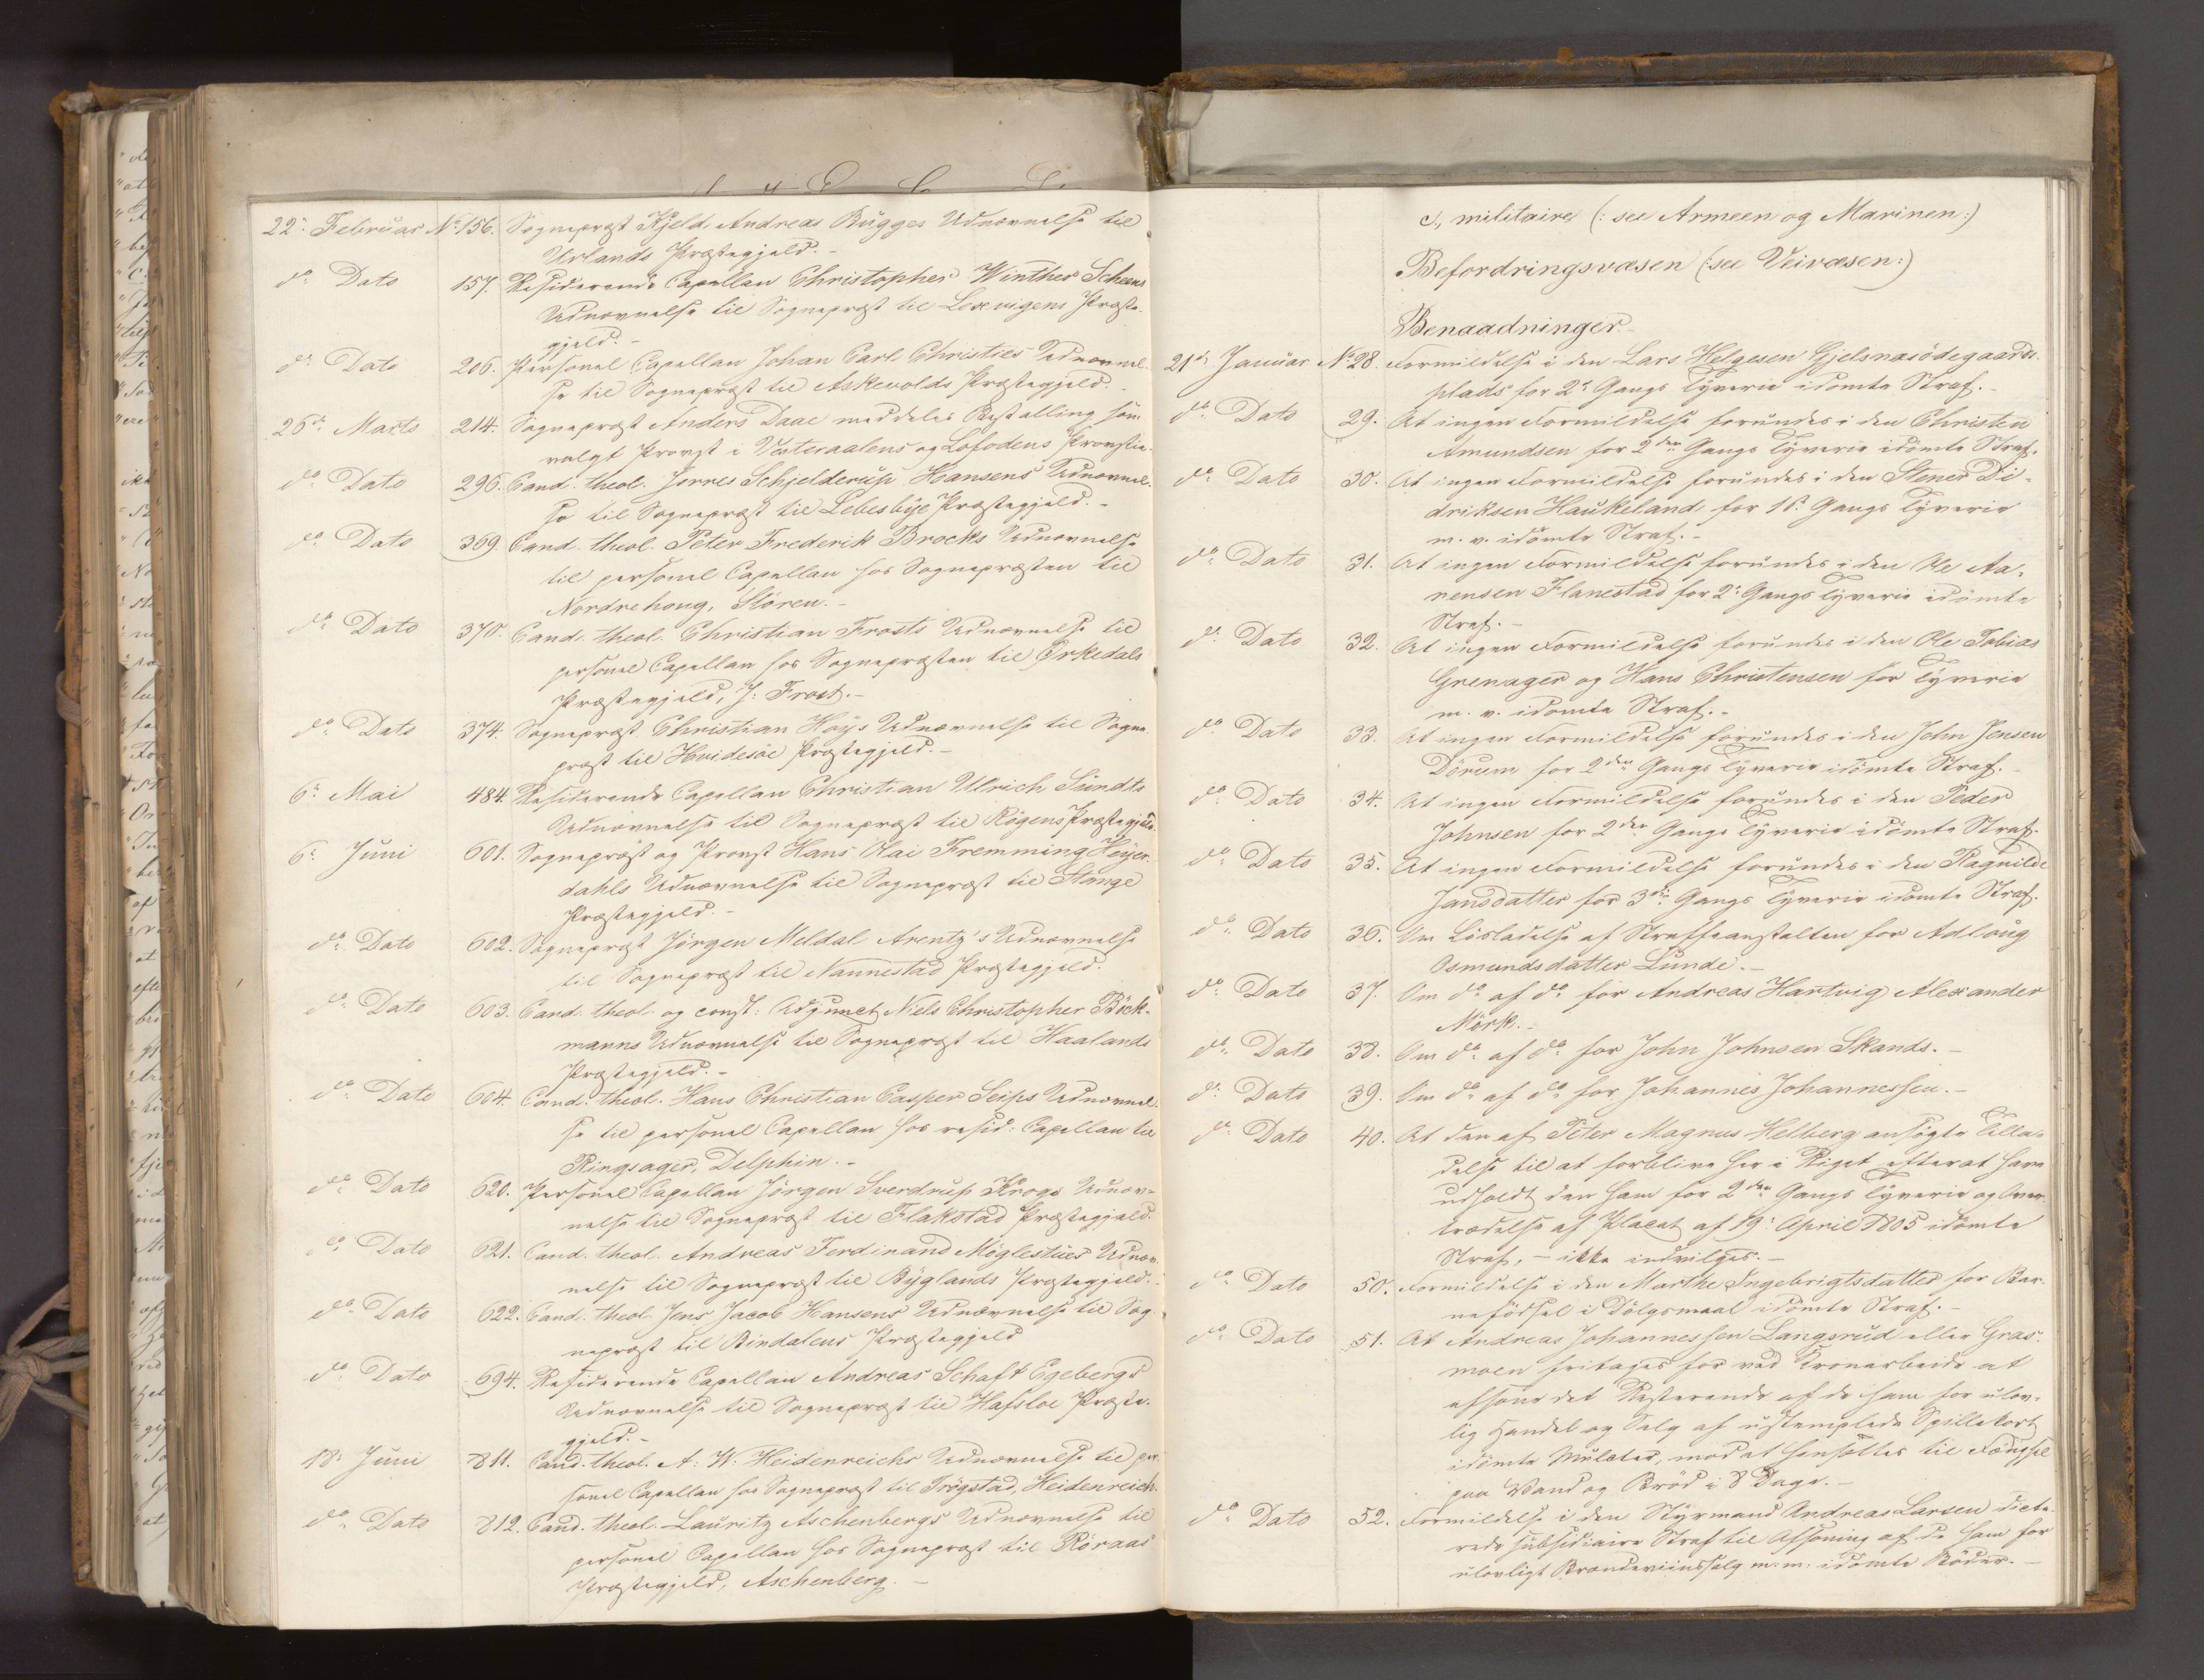 22de Februar No 156. Sognepræst Kjeld Andreas Bugges Udnævnelse til
Urlands Præstegjeld.-
do Dato 157. Residerende Capellan Christopher Winther Scheens
Udnævnelse til Sognepræst til Lexvigens Præste-
gjeld.-
do Dato 206. Personel Capellan Johan Carl Christies Udnævnel-
se til Sognepræst til Askevolds Præstegjeld.-
26de Marts 214. Sognepræst Anders Daae meddeles Bestalling som
valgt Provst i Vesteraalens og Lofodens Provstie.
do Dato 296. Cand. theol. Jørres Schjelderup Hansens Udnævnel-
se til Sognepræst til Lebesbye Præstegjeld.-
do Dato 369. Cand. theol. Peter Frederik Brocks Udnævnelse
til personel Capellan hos Sognepræsten til
Nordrehoug, Støren.-
do Dato 370. Cand. theol. Christian Frosts Udnævnelse til
personel Capellan hos Sognepræsten til Ørkedals
Præstegjeld, J. Frost.-
do Dato 374. Sognepræst Christian Høys Udnævnelse til Sogne-
præst til Hvidesøe Præstegjeld.-
6te Mai 484. Residerende Capellan Christian Ulrich Sundts
Udnævnelse til Sognepræst til Røgens Præstegjeld.
6te Juni 601. Sognepræst og Provst Hans Kai Fremming Heyer-
dahls Udnævnelse til Sognepræst til Stange
Præstegjeld.-
do Dato 602. Sognepræst Jørgen Meldal Arentz's Udnævnelse
til Sognepræst til Nannestad Præstegjeld.
do Dato 603. Cand. theol. og const: Adjunct Niels Christopher Böck-
manns Udnævnelse til Sognepræst til Haalands
Præstegjeld.-
do Dato 604. Cand. theol. Hans Christian Casper Seips Udnævnel-
se til personel Capellan hos resid: Capellan til
Ringsager, Delphin.-
do Dato 620. Personel Capellan Jörgen Sverdrup Krogs Udnæv-
nelse til Sognepræst til Flakstad Præstegjeld.
do Dato 621. Cand. theol. Andreas Ferdinand Möglestues Udnæv-
nelse til Sognepræst til Byglands Præstegjeld.
do Dato 622. Cand. theol. Jens Jacob Hansens Udnævnelse til Sog-
nepræst til Bindalens Præstegjeld
do Dato 694. Residerende Capellan Andreas Schaft Egebergs
Udnævnelse til Sognepræst til Hafsloe Præste-
gjeld.-
18de Juni 811. Cand. theol. A. W. Heidenreichs Udnævnelse til per-
sonel Capellan hos Sognepræst til Trögstad, Heidenreich.
do Dato 812. Cand. theol. Lauritz Aschenbergs Udnævnelse til
personel Capellan hos Sognepræst til Röraas
Præstegjeld, Aschenberg.-
c., militaire (: see Armeen og Marinen:)
Befordringsvæsen (: see Veivæsen:)
Benaadninger
21de Januar No 28. Formildelse i den Lars Helgesen Gjelsnæsödegaards-
plads for 2de Gangs Tyverie idömte Straf.-
do Dato 29. At ingen Formildelse forundes i den Christen
Amundsen for 2den Gangs Tyverie idömte Straf.
do Dato 30. At ingen Formildelse forundes i den Stener Di-
driksen Haukeland for 1ste Gangs Tyverie
m. v. idömte Straf.-
do Dato 31. At ingen Formildelse forundes i den Ole Aa-
nensen Flanestad for 2de Gangs Tyverie idömte
Straf.-
do Dato 32. At ingen Formildelse forundes i den Ole Tobias
Grenager og Hans Christensen for Tyverie
m. v. idömte Straf.-
do Dato 33. At ingen Formildelse forundes i den John Jensen
Dörum for 2den Gangs Tyverie idömte Straf.-
do Dato 34. At ingen Formildelse forundes i den Peder
Johnsen for 2den Gangs Tyverie idömte Straf.
do Dato 35. At ingen Formildelse forundes i den Ragnilde
Jansdatter for 3die Gangs Tyverie idömte Straf.
do Dato 36. Om Lösladelse af Straffeanstalten for Adloug
Osmundsdatter Lunde.-
do Dato 37. Om do af do for Andreas Hartvig Alexander
Mörk.-
do Dato 38. Om do af do for John Johnsen Skands.-
do Dato 39. Om do af do for Johannes Johannessen.-
do Dato 40. At den af Peter Magnus Helberg ansögte Tilla-
delse til at forblive her i Riget efterat have
udholdt den ham for 2den Gangs Tyverie og Over-
trædelse af Placat af 19de April 1805 idömte
Straf, - ikke indvilges.-
do Dato 50. Formildelse i den Marthe Ingebrigtsdatter for Bar-
nefödsel i Dölgsmaal idömte Straf.-
do Dato 51. At Andreas Johannessen Langsrud eller Gras-
moen fritages for ved Tronarbeide at
afsone det Resterende af de ham for ulov-
lig Handel og Salg af ustemplede Spillekort
idömte Mulcter, mod at hensættes til Fængsel
paa Vand og Bröd i 8 Dage.-
do Dato 52. Formildelse i den Styrmand Andreas Larsen dicte-
rede subsidiaire Straf til Afsoning af de ham for
ulovligt Brændeviinssalg m. m. idömte Böder.-